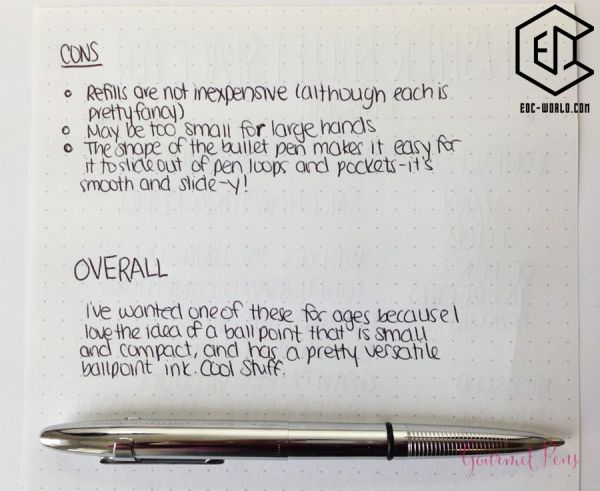 EDC
EDC-WORLD.COM
CONS
Refills are not inexpensive (although each is
pretty fancy)
May be too small for large hands
The shape of the bullet pen makes it easy for
it to slide out of pen loops and pockets - it's
smooth and slide-y!
OVERALL
I've wanted one of these for ages because I
love the idea of a ballpoint that is small
and compact, and has a pretty versatile
ballpoint ink. Cool stuff.
Gourmet Pens